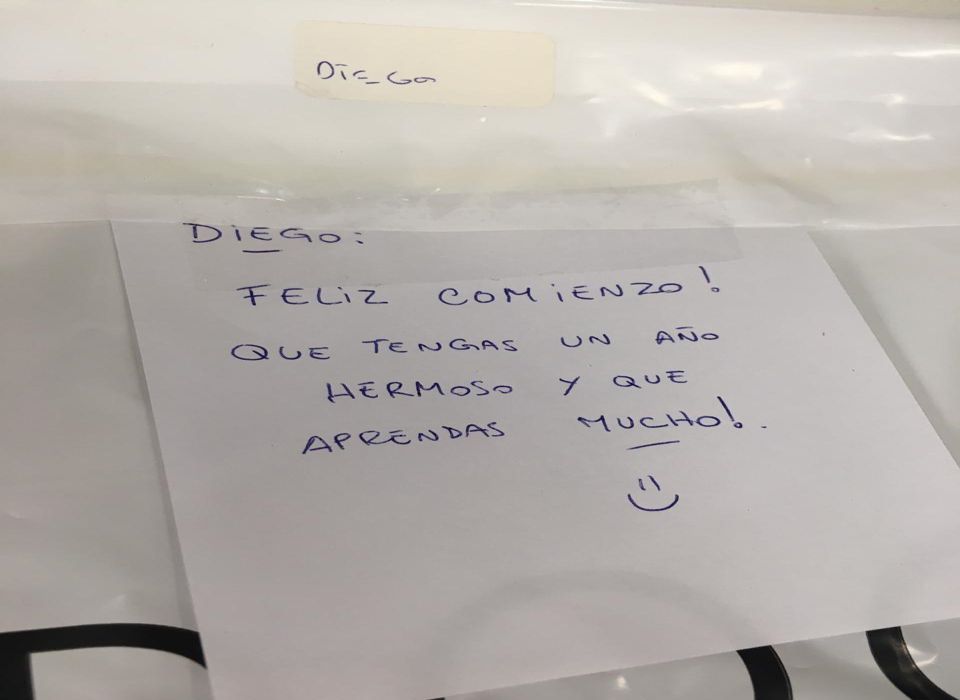 DIEGO
DIEGO:
FELIZ COMIENZO!
QUE TENGAS UN AÑO
HERMOSO Y QUE
APRENDAS MUCHO!.